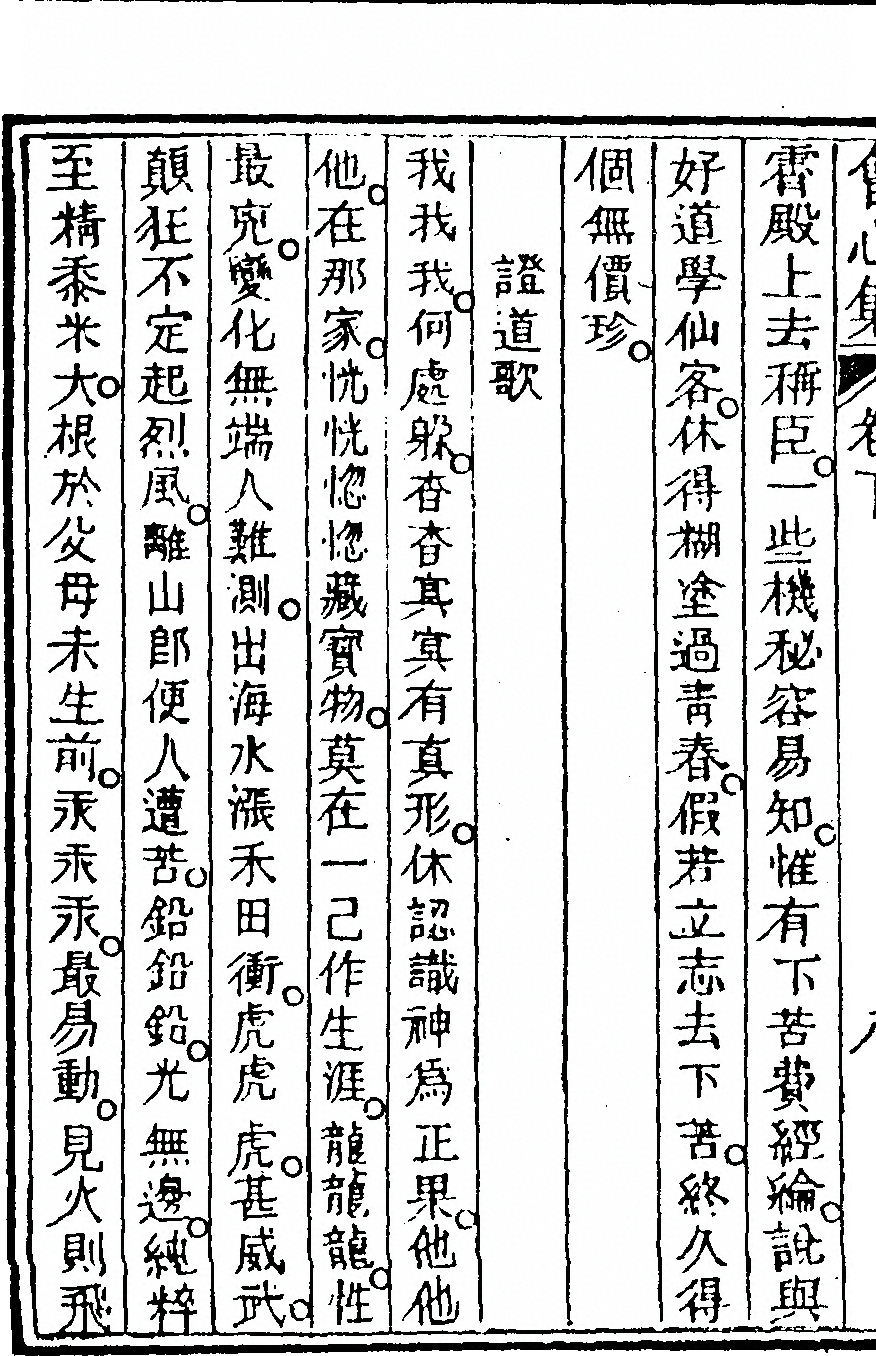 會心集 卷下 八
霄殿上去稱臣。一些機秘容易知。惟有下苦費經綸。說與
好道學仙客。休得糊塗過青春。假若立志去下苦。終久得
個無價珍。
證道歌
我我我。何處躲。杳杳冥冥有真形。休認識神為正果。他他
他。在那家。恍恍惚惚藏寶物。莫在一己作生涯。龍龍龍。性
最兇。變化無端人難測。出海水漲禾田衝。虎虎虎。甚威武。
顛狂不定起烈風。離山郎便人遭苦。鉛鉛鉛。光無邊。純粹
至精黍米大。根於父母未生前。汞汞汞。最易動。見火則飛